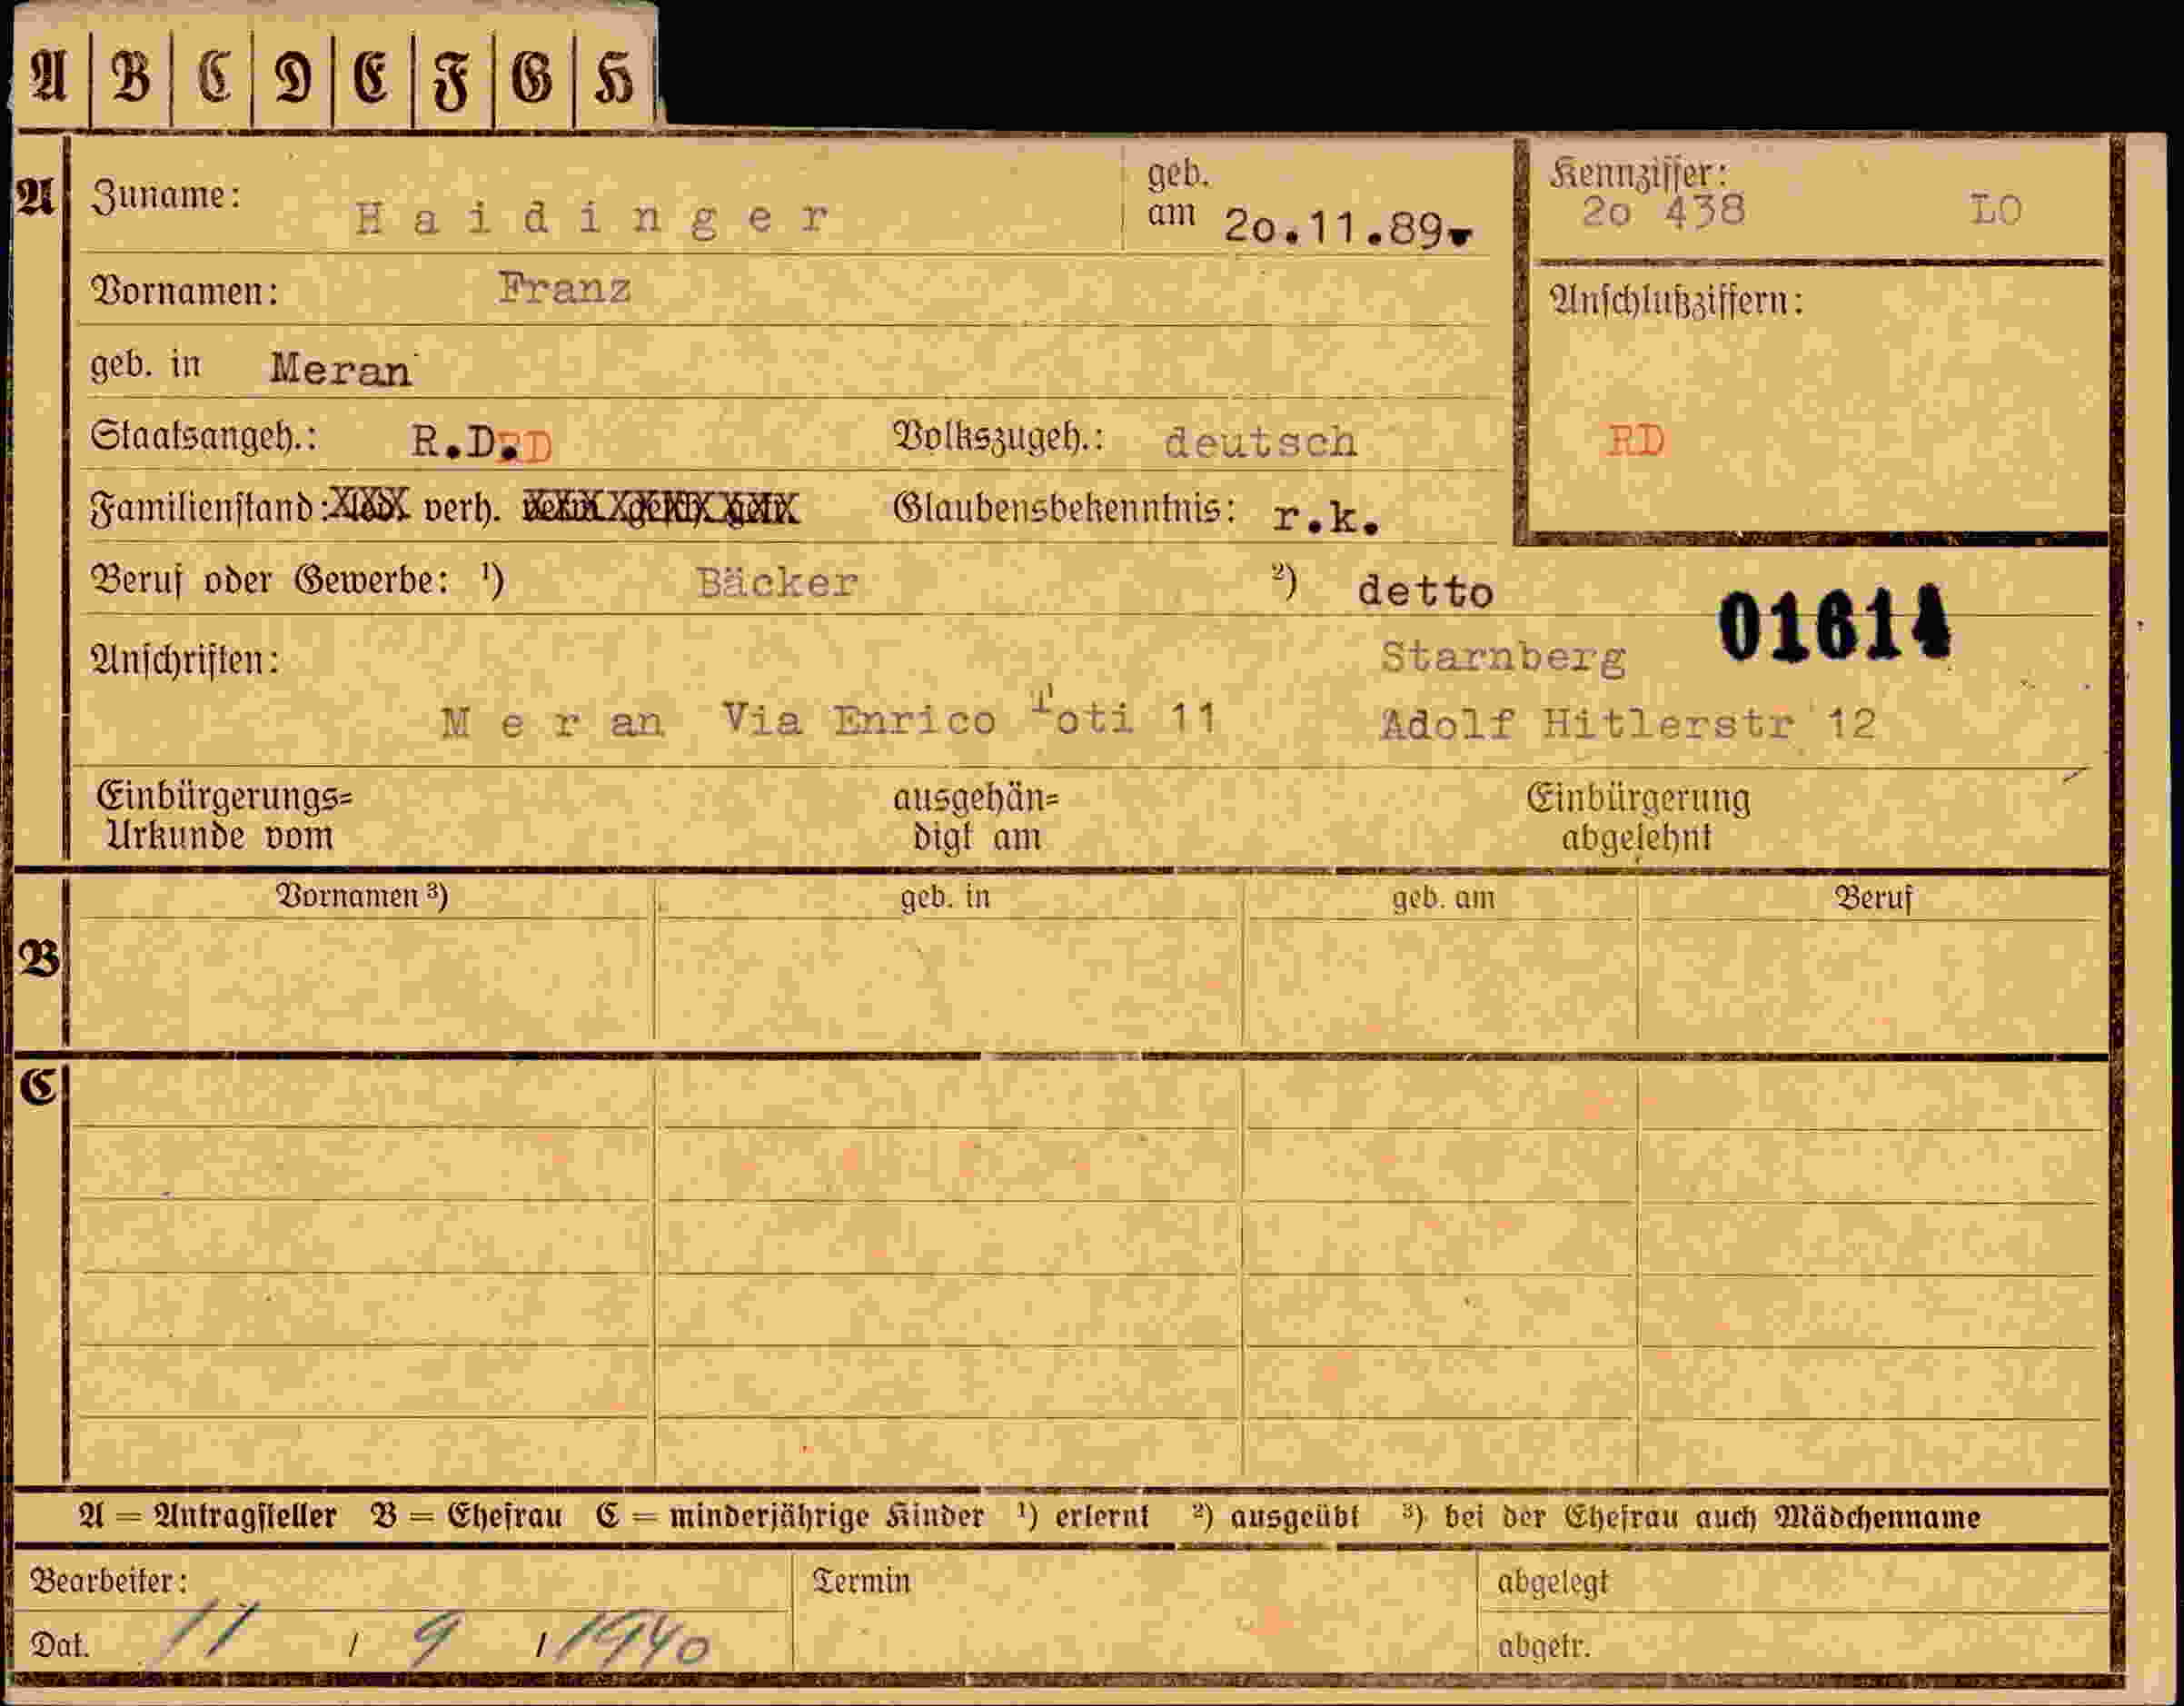 A B C D E F G H
A Zuname: Haidinger geb. am 20.11.89. Kennziffer: 20 438 LO
Vornamen: Franz Anschlußziffern:
geb. in Meran
Staatsangeh.: R.D. RD Volkszugeh.: deutsch RD
Familienstand: led. verh. verw. gesch. getr. Glaubensbekenntnis: r.k.
Beruf oder Gewerbe: ¹) Bäcker ²) detto 01614
Anschriften: Starnberg
Meran Via Enrico Toti 11 Adolf Hitlerstr 12
Einbürgerungs= ausgehän= Einbürgerung
Urkunde vom digt am abgelehnt
Vornamen ³) geb. in geb. am Beruf
B
C
A = Antragsteller B = Ehefrau C = minderjährige Kinder ¹) erlernt ²) ausgeübt ³) bei der Ehefrau auch Mädchenname
Bearbeiter: Termin abgelegt
Dat. 11 / 9 / 1940 abgetr.